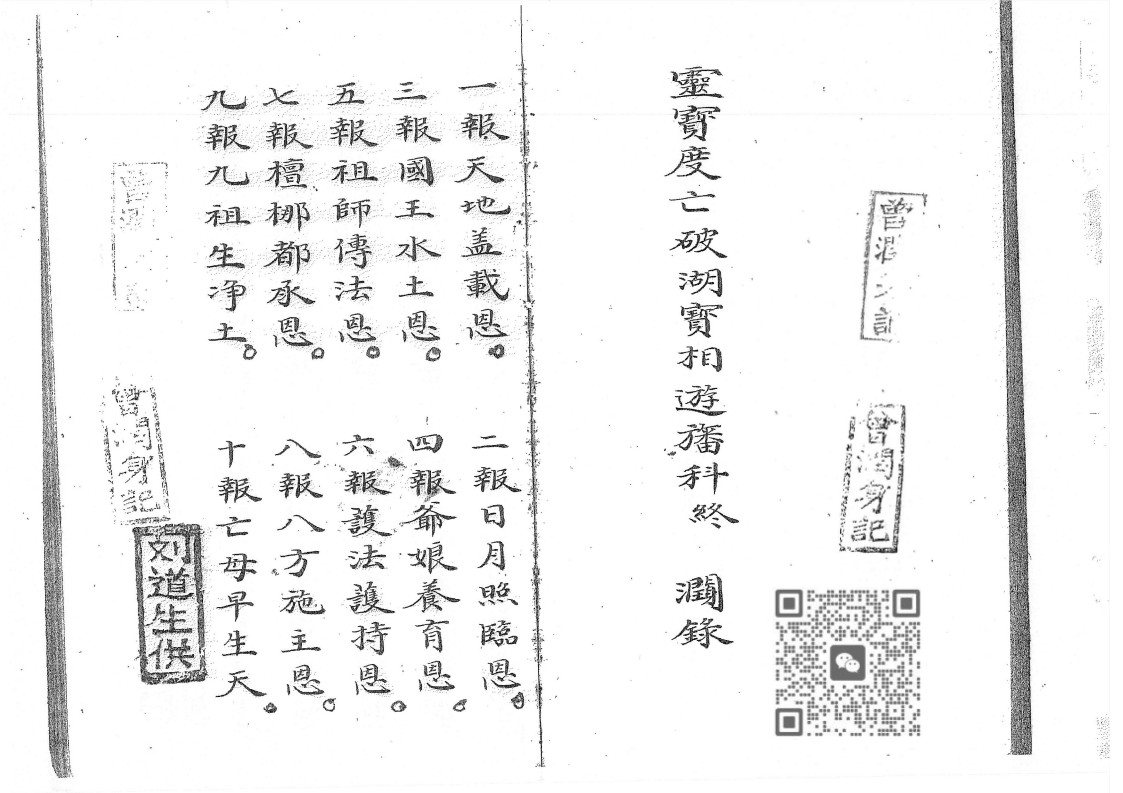 曾潤身記
靈寶度亡破湖寶相遊旛科終 潤錄
一報天地盖載恩。 二報日月照臨恩。
三報國王水土恩。 四報爺娘養育恩。
五報祖師傳法恩。 六報護法護持恩。
七報檀梛都承恩。 八報八方施主恩。
九報九祖生净土。 十報亡母早生天。
曾潤身記
刘道生供